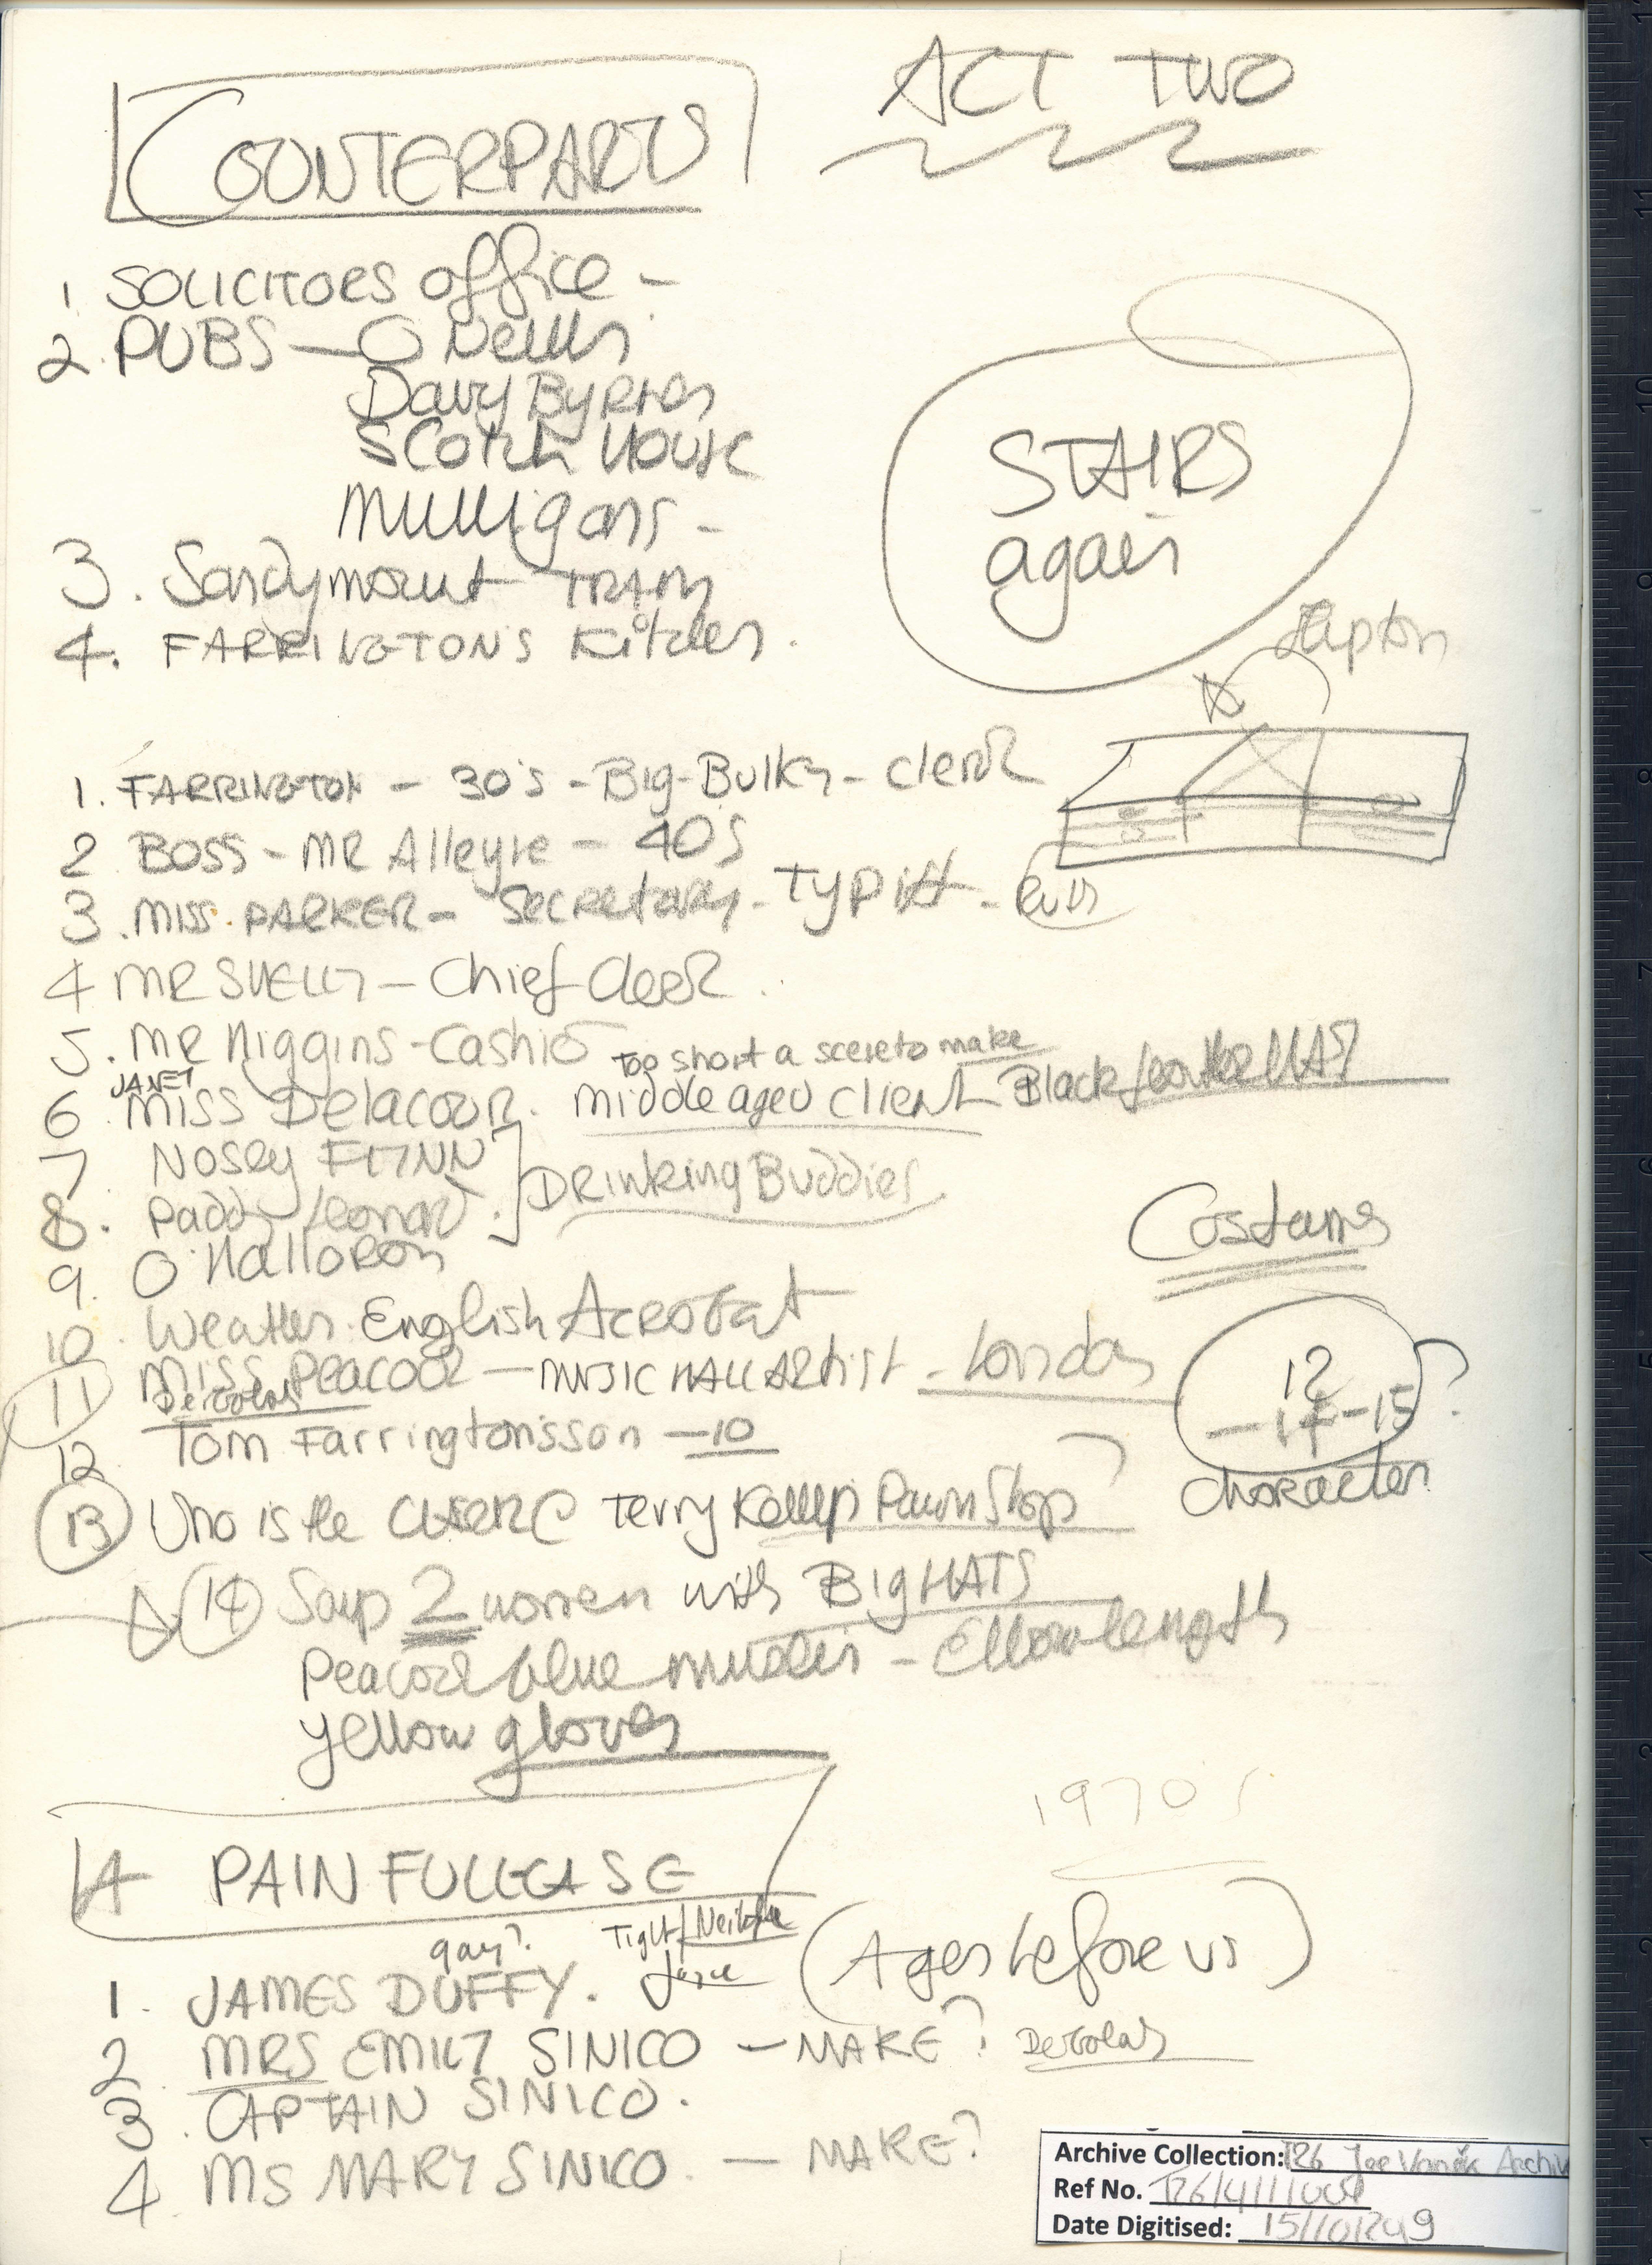 ACT TWO
COUNTERPARTS
1 SOLICITORS office -
2. PUBS - O Neills
Davy Byrnes
Scotch House
Mulligans -
STAIRS
again
3. Sandymount TRAM
4. FARRINGTONS Kitchen.
1. FARRINGTON - 30's - Big-Bulky - clerk
2 BOSS - MR Alleyne - 40s
3. MISS PARKER - Secretary - Typist -
4 MR SHELLY - Chief Clerk
5. MR Higgins - Cashie
Too short a scene to make
JANET
6 MISS Delacour. middle aged client Black feather HAT
7 Nosey FLYNN
8. Paddy Leonard. Drinking Buddies
9. O'Halloran
Costumes
10. Weathers. English Acrobat
11 MISS Peacock - MUSIC HALL ARtist - London
Dervolas
12 - 14 - 15?
characters
12 Tom Farringtons son - 10
13 Who is the CLERK @ Terry Kellys Pawn Shop?
14 Says 2 women with BIG HATS
Peacock blue muslin - Elbow length
yellow gloves
1970s
A PAINFULL CASE
gay? Tight
1. JAMES DUFFY. (Ages before us)
2 MRS EMILY SINICO - MAKE? Dervolas
3. CAPTAIN SINICO.
4 MS MARY SINICO. - MAKE?
Archive Collection: T26 Joe Vaněk Archiv
Ref No.
Date Digitised: 15/10/2019